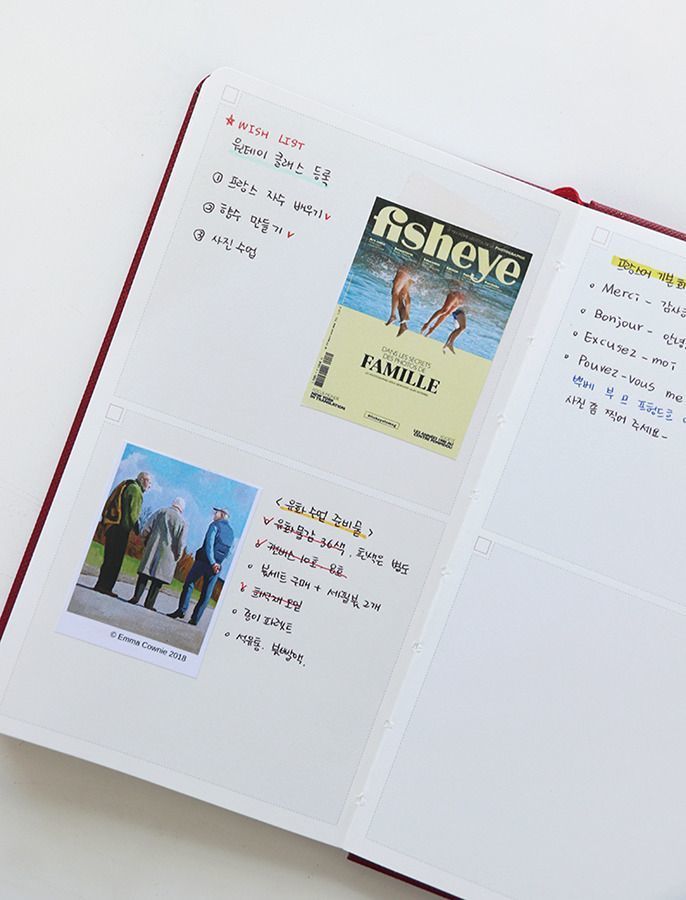 ★ WISH LIST
원데이 클래스 등록
① 프랑스 자수 배우기 ✓
② 향수 만들기 ✓
③ 사진 수업
fisheye
DANS LES SECRETS
DES PHOTOS DE
FAMILLE
© Emma Cownie 2018
< 유화 수업 준비물 >
유화물감 36색, 흰색은 별도
캔버스 10호 - 8호
붓세트 구매 + 세필붓 2개
희석재 오일
종이 파레트
석유통. 붓빨액.
프랑스어 기본 회
Merci - 감사
Bonjour - 안녕
Excusez - moi
Pouvez - vous me
사진 좀 찍어 주세요-